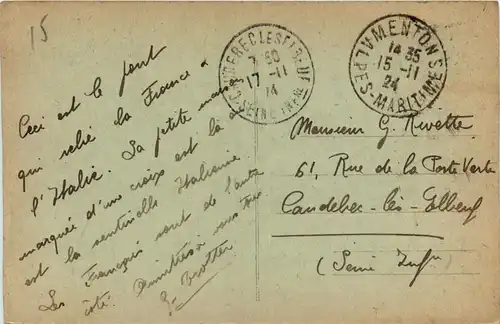 15
Ceci est le pont
qui relie la France à
l'Italie. La petite maison
marquée d'une croix est là où
est la sentinelle Italienne.
Les Français sont de l'autre
côté. vous tous
Trotter
CAUDEBEC LES ELBEUF
7 30
17 - 11
24
SEINE INFRE
MENTON
14 35
15 - 11
24
ALPES-MARITIMES
Monsieur G. Rivette
61, Rue de la Porte Verte
Caudebec-lès-Elbeuf
(Seine Infre)